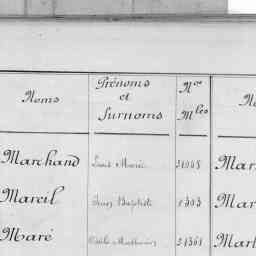 Noms
Prénoms
et
Surnoms
Nos
Mles
No
Marchand Louis Marie
Mar
Mareil Jean Baptiste 1303
Mar
Maré Mathurin 21361
Mart